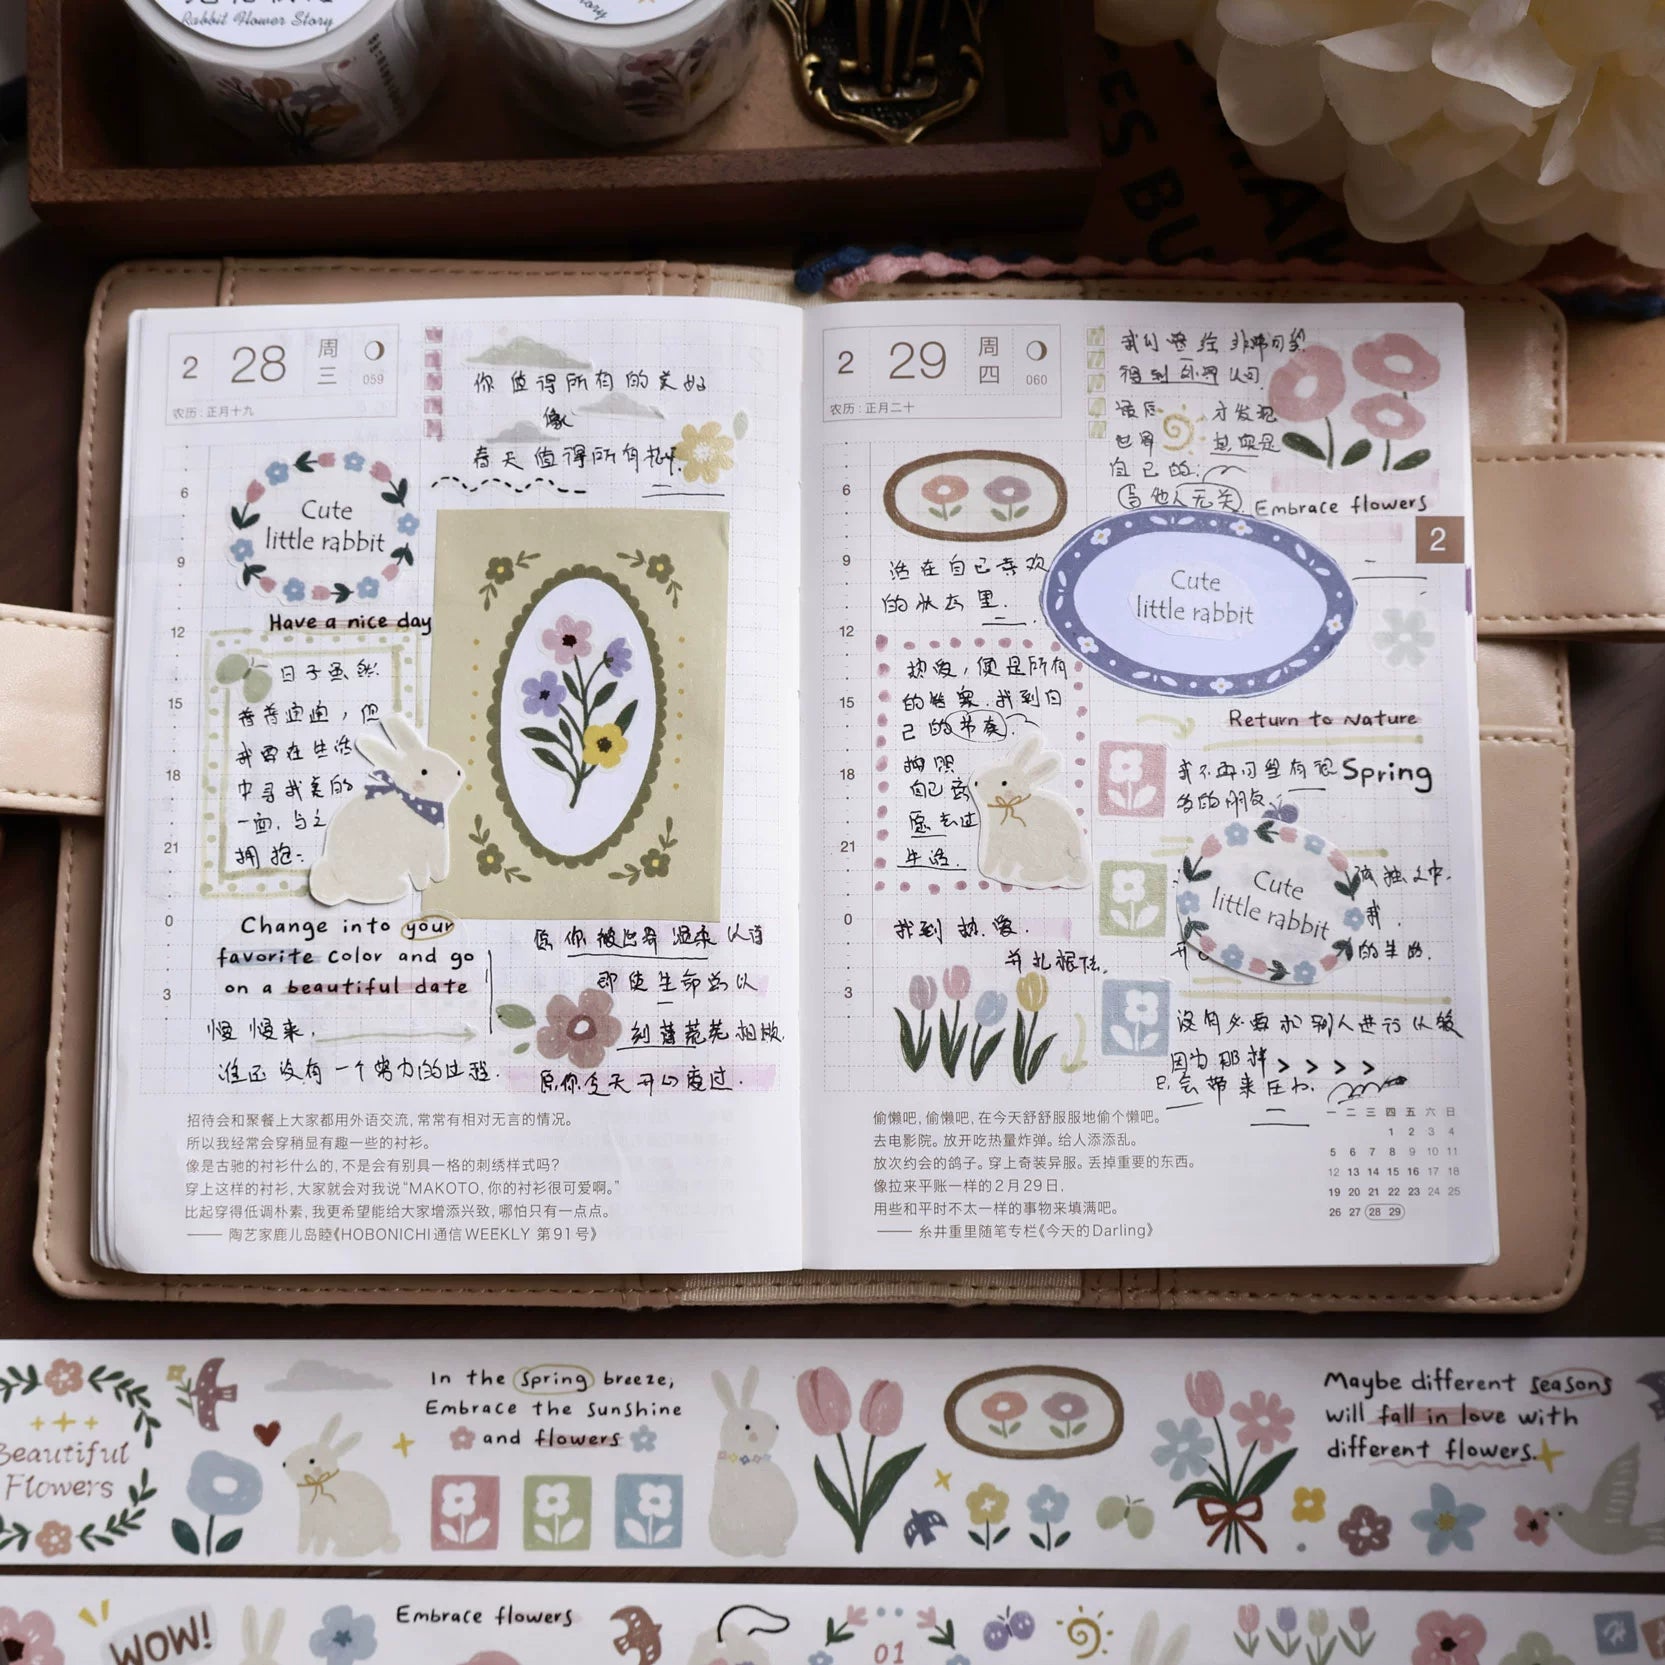 Rabbit Flower Story
2 28 周三 059
农历:正月十九
你值得所有的美好
像
春天值得所有
6
9
12
15
18
21
0
3
Cute
little rabbit
Have a nice day
日子虽然
普普通通,但
我要在生活
中寻找美的
一面,与之
拥抱:
Change into your
favorite color and go
on a beautiful date
慢慢来,
谁还没有一个努力的过程.
愿你被世界温柔以待
即使生命总以
刻薄荒芜相欺
愿你今天开心度过.
招待会和聚餐上大家都用外语交流,常常有相对无言的情况。
所以我经常会穿稍显有趣一些的衬衫。
像是古驰的衬衫什么的,不是会有别具一格的刺绣样式吗?
穿上这样的衬衫,大家就会对我说“MAKOTO,你的衬衫很可爱啊。”
比起穿得低调朴素,我更希望能给大家增添兴致,哪怕只有一点点。
—— 陶艺家鹿儿岛睦《HOBONICHI通信WEEKLY 第91号》
2 29 周四 060
农历:正月二十
我们曾经
得到外界认可
最后 才发现
世界 其实是
自己的:
与他人无关
Embrace flowers
2
6
9
12
15
18
21
0
3
活在自己喜欢
的状态里.
Cute
little rabbit
热爱,便是所有
的答案.找到自
己的节奏.
按照
自己意
愿去过
生活.
Return to Nature
Spring
Cute
little rabbit
孤独之中.
找到热爱.
并扎根.
没有必要和别人进行比较
因为那样>>>>
只会带来压力.
偷懒吧,偷懒吧,在今天舒舒服服地偷个懒吧。
去电影院。放开吃热量炸弹。给人添添乱。
放次约会的鸽子。穿上奇装异服。丢掉重要的东西。
像拉来平账一样的2月29日,
用些和平时不太一样的事物来填满吧。
—— 糸井重里随笔专栏《今天的Darling》
一 二 三 四 五 六 日
1 2 3 4
5 6 7 8 9 10 11
12 13 14 15 16 17 18
19 20 21 22 23 24 25
26 27 28 29
Beautiful
Flowers
In the spring breeze,
Embrace the sunshine
and flowers
Maybe different seasons
will fall in love with
different flowers.
WOW!
Embrace flowers
01